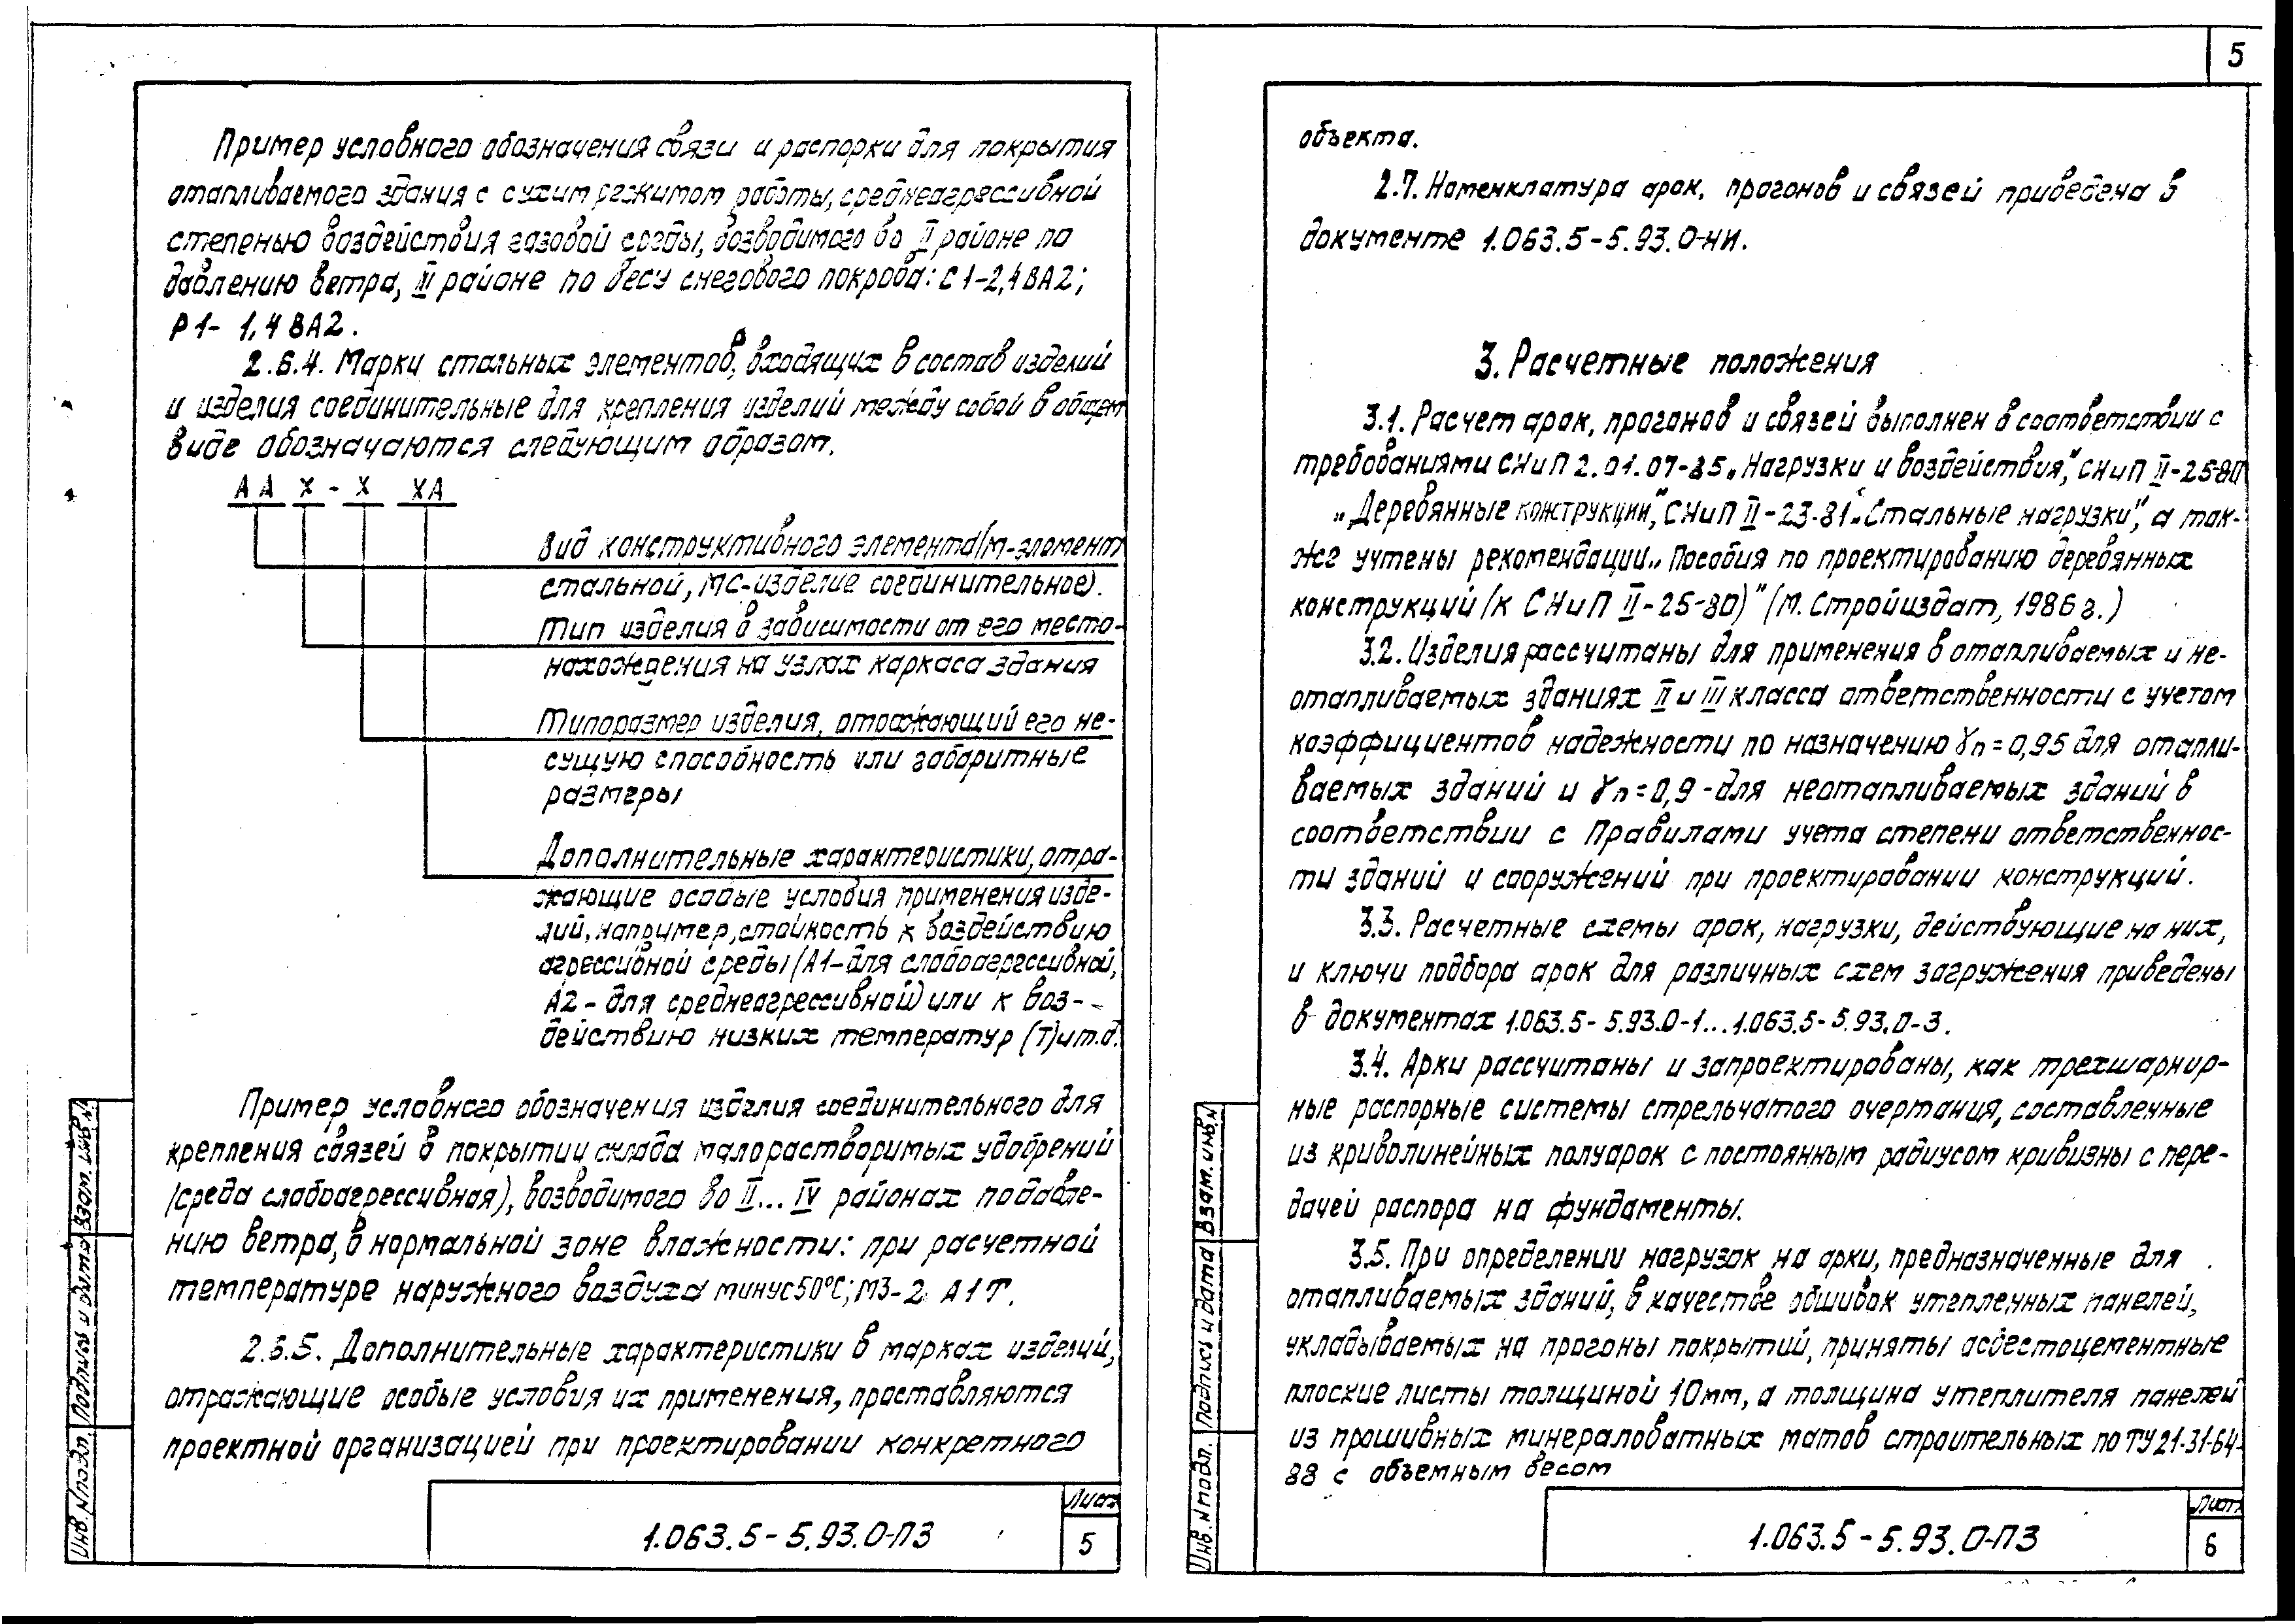 5
Пример условного обозначения связи и распорки для покрытия
отапливаемого здания с сухим режимом работы, среднеагрессивной
степенью воздействия газовой среды, возводимого во II районе по
давлению ветра, III районе по весу снегового покрова: С1-2,4ВА2;
Р1- 1,4ВА2.
2.6.4. Марки стальных элементов, входящих в состав изделий
и изделия соединительные для крепления изделий между собой в общем
виде обозначаются следующим образом.
АА Х - Х ХА
Вид конструктивного элемента (М-элемент
стальной, МС-изделие соединительное).
Тип изделия в зависимости от его место-
нахождения на узлах каркаса здания
Типоразмер изделия, отражающий его не-
сущую способность или габаритные
размеры
Дополнительные характеристики, отра-
жающие особые условия применения изде-
лий, например, стойкость к воздействию
агрессивной среды (А1-для слабоагрессивной,
А2 - для среднеагрессивной) или к воз-
действию низких температур (Т) и т.д.
Пример условного обозначения изделия соединительного для
крепления связей в покрытии склада малорастворимых удобрений
(среда слабоагрессивная), возводимого во II... IV районах по давле-
нию ветра, в нормальной зоне влажности: при расчетной
температуре наружного воздуха минус 50°С; М3-2 А1Т.
2.6.5. Дополнительные характеристики в марках изделий,
отражающие особые условия их применения, проставляются
проектной организацией при проектировании конкретного
Инв. N подл. Подпись и дата Взам. инв. N
1.063.5-5.93.0-ПЗ
Лист
5
объекта.
2.7. Номенклатура арок, прогонов и связей приведена в
документе 1.063.5-5.93.0-НИ.
3. Расчетные положения
3.1. Расчет арок, прогонов и связей выполнен в соответствии с
требованиями СНиП 2.01.07-85 „Нагрузки и воздействия," СНиП II-25-80
„Деревянные конструкции", СНиП II-23-81 „Стальные нагрузки", а так-
же учтены рекомендации „Пособия по проектированию деревянных
конструкций (к СНиП II-25-80)" (М. Стройиздат, 1986г.)
3.2. Изделия рассчитаны для применения в отапливаемых и не-
отапливаемых зданиях II и III класса ответственности с учетом
коэффициентов надежности по назначению γn=0,95 для отапли-
ваемых зданий и γn=0,9 -для неотапливаемых зданий в
соответствии с Правилами учета степени ответственнос-
ти зданий и сооружений при проектировании конструкций.
3.3. Расчетные схемы арок, нагрузки, действующие на них,
и ключи подбора арок для различных схем загружения приведены
в документах 1.063.5-5.93.0-1...1.063.5-5.93.0-3.
3.4. Арки рассчитаны и запроектированы, как трехшарнир-
ные распорные системы стрельчатого очертания, составленные
из криволинейных полуарок с постоянным радиусом кривизны с пере-
дачей распора на фундаменты.
3.5. При определении нагрузок на арки, предназначенные для
отапливаемых зданий, в качестве обшивок утепленных панелей,
укладываемых на прогоны покрытий, приняты асбестоцементные
плоские листы толщиной 10мм, а толщина утеплителя панелей
из прошивных минераловатных матов строительных по ТУ 21-31-64-
88 с объемным весом
Инв. N подл. Подпись и дата Взам. инв. N
1.063.5-5.93.0-ПЗ
Лист
6